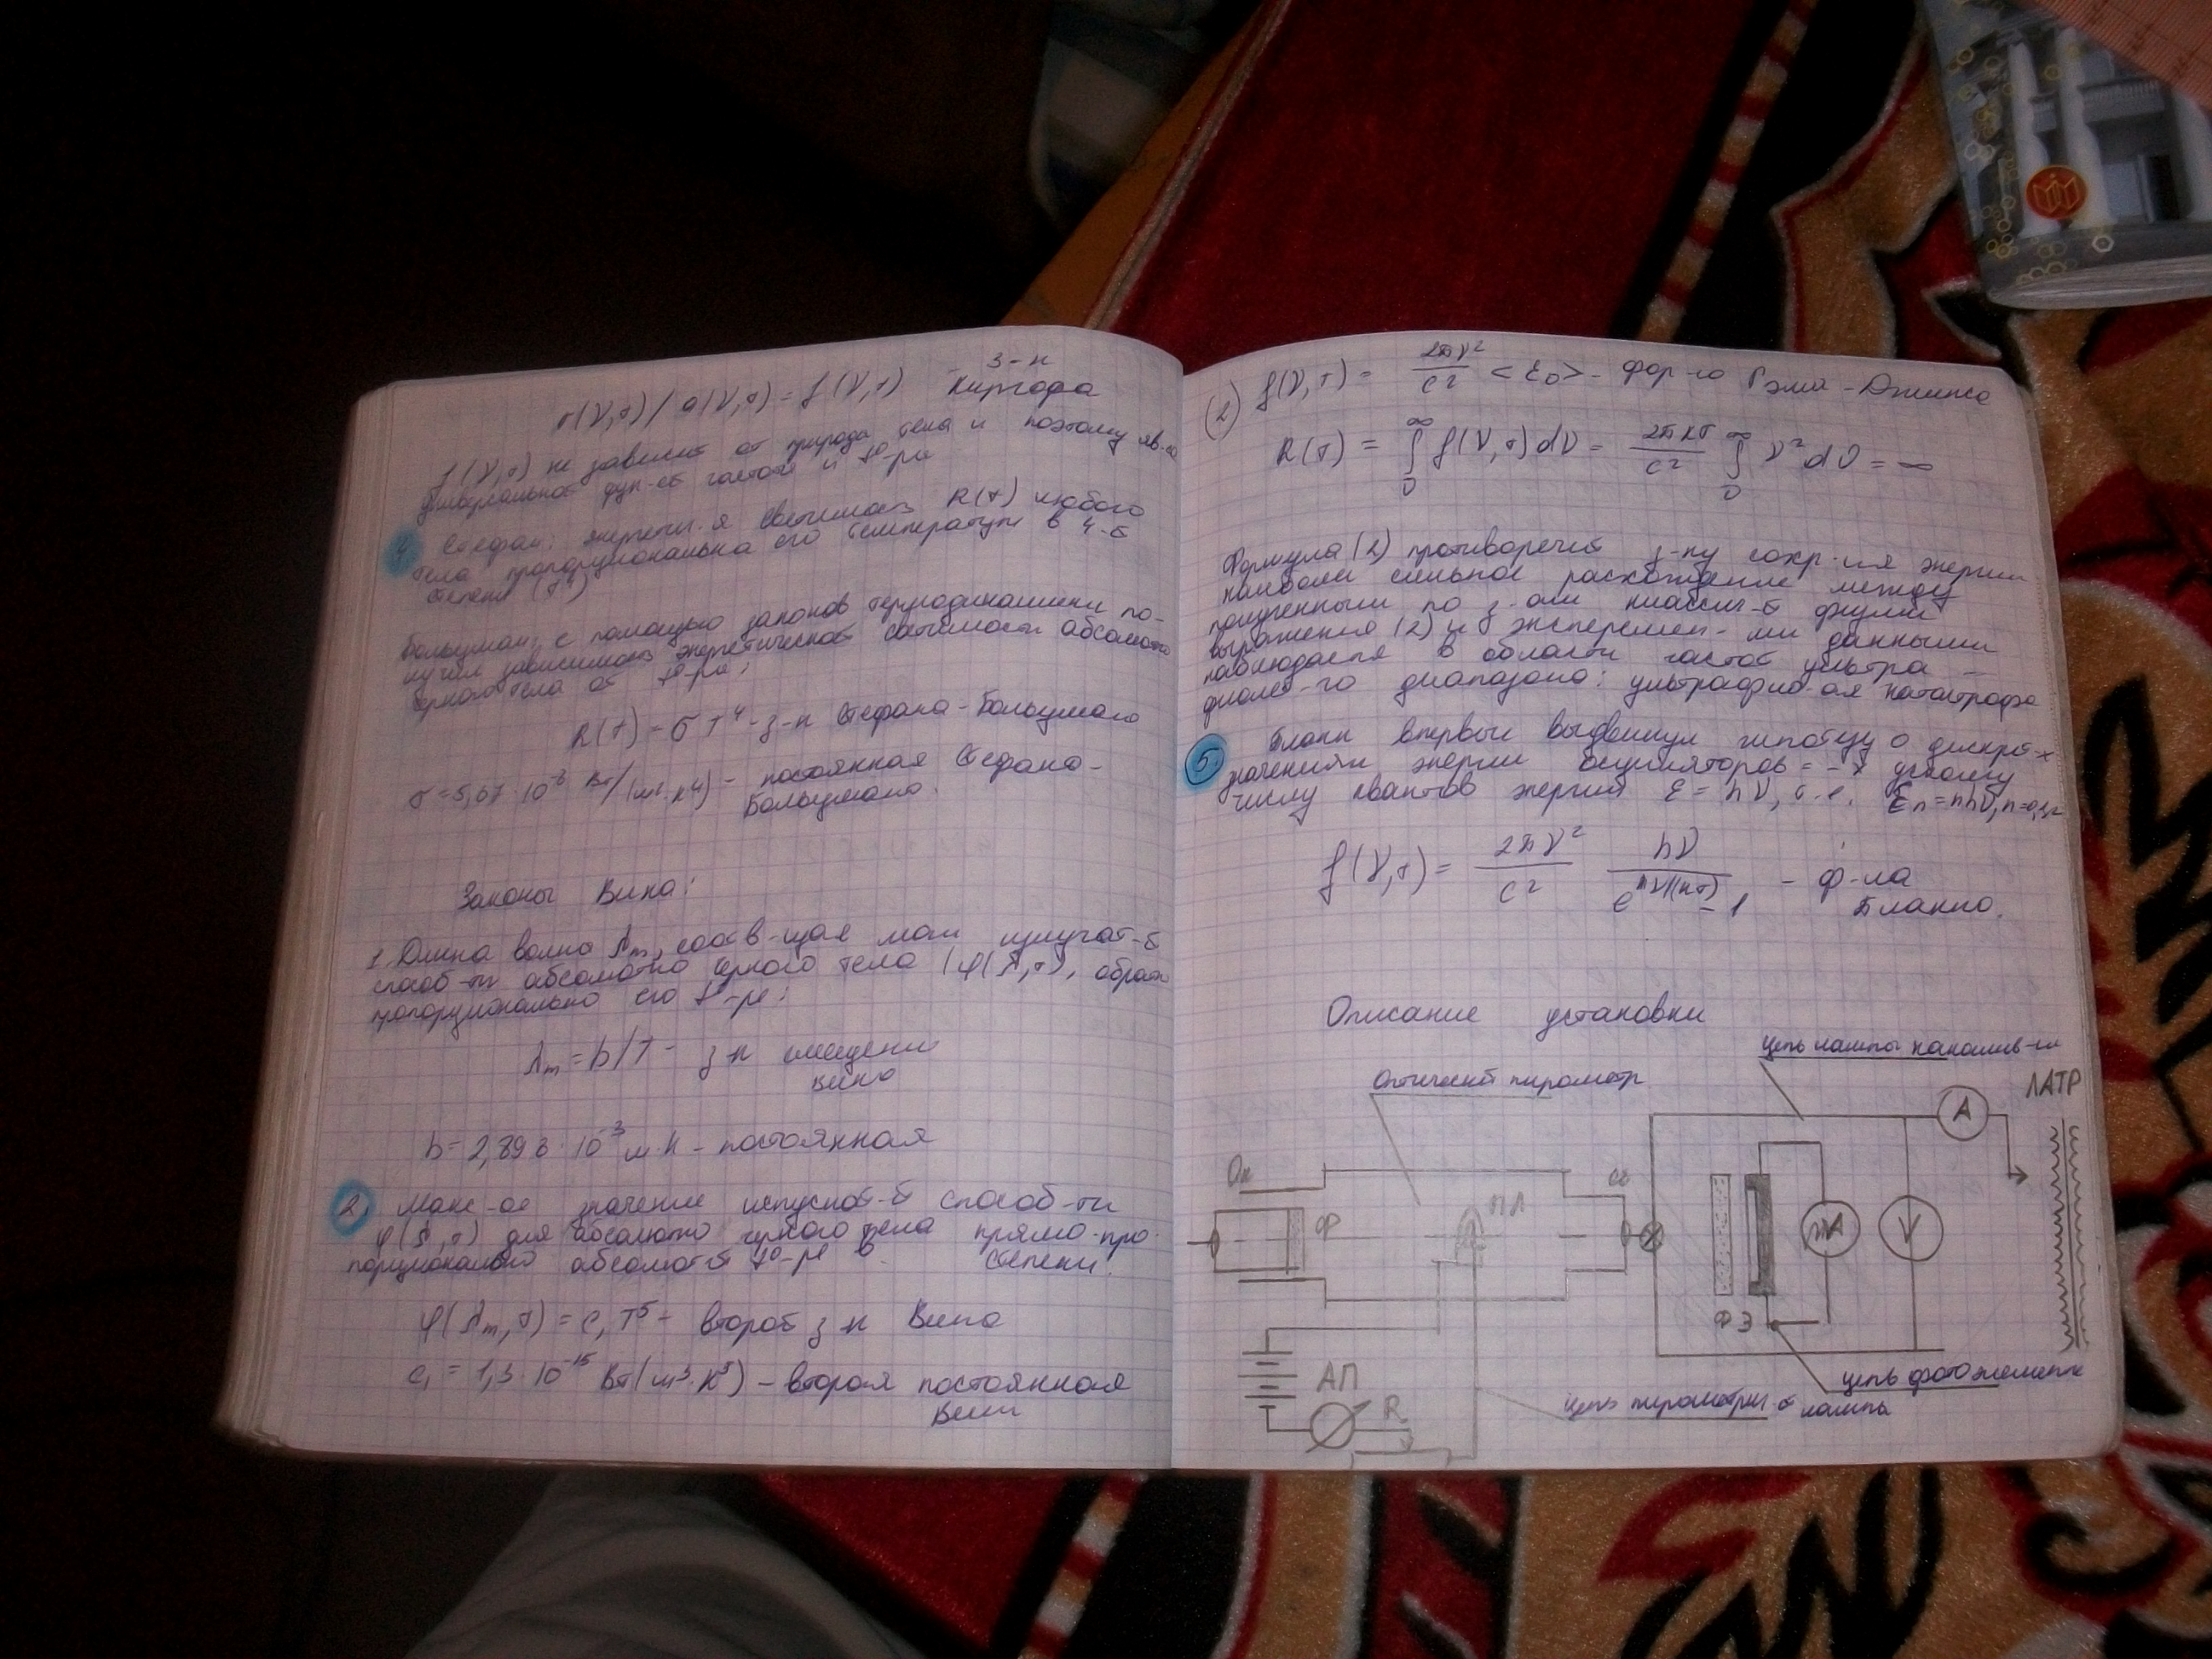 з-н
r(ν,т) / a(ν,т) = f(ν,т) Кирхгофа
f(ν,т) не зависит от природы тела и поэтому яв-ся
универсальной фун-ей частоты и t°-ры
4. Стефан: энергети-я светимость R(т) любого
тела пропорциональна его температуре в 4-й
степени (T⁴)
Больцман: с помощью законов термодинамики по-
лучил зависимость энергетической светимости абсолютно
чёрного тела от t°-ры:
R(т) = σ T⁴ - з-н Стефана-Больцмана
σ = 5,67·10⁻⁸ Вт/(м²·К⁴) - постоянная Стефана-
Больцмана.
Законы Вина:
1. Длина волны λm, соотв-щая мак излучат-й
способ-ти абсолютно чёрного тела (φ(λ,т), обратно
пропорционально его t°-ре:
λm = b/T - з-н смещения
Вина
b = 2,893·10⁻³ м·К - постоянная
2. Макс-ое значение испускат-й способ-ти
φ(λ,т) для абсолютно черного тела прямо про-
порционально абсолютной t°-ре в степени.
φ(λm,т) = c₁T⁵ - второй з-н Вина
c₁ = 1,3·10⁻¹⁵ Вт(м³·К⁵) - вторая постоянная
Вина
(2) f(ν,т) = 2πν²/c² <ε₀> - фор-ла Рэлея-Джинса
R(т) = ∫₀^∞ f(ν,т)dν = 2πkт/c² ∫₀^∞ ν²dν = ∞
Формула (2) противоречит з-ну сохр-ия энергии
наиболее сильное расхождение между
полученными по з-ам классич-й физики
выражения (2) и эксперемен-ми данными
наблюдается в области частот ультра-
фиолет-го диапазона: ультрафиол-ая катастрофа
5. Планк впервые выдвинул гипотезу о дискрет-х
значениях энергии осцилляторов = - х целому
числу квантов энергий ε = hν, т.е. εn = nhν, n=0,1,2
f(ν,т) = 2πν²/c² hν/e^(hν/(kт)) - 1 - ф-ла
Планка.
Описание установки
цепь лампы накалив-ия
оптический пирометр
ЛАТР
A
Ок
ПЛ
Ф
mA
V
ФЭ
цепь фотоэлемента
АП
R
цепь пирометрич-й лампы